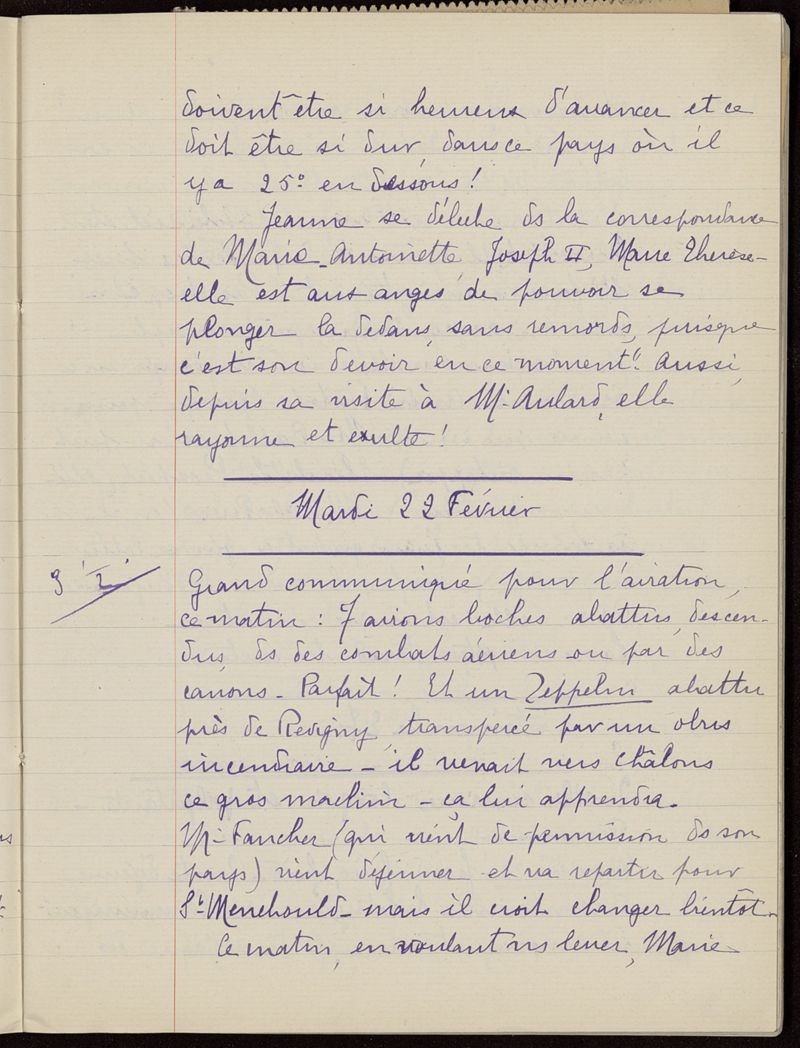 doivent être si heureux d'avancer et ce
doit être si dur, dans ce pays où il
y a 25° en dessous!
Jeanne se délecte ds la correspondance
de Marie-Antoinette, Joseph II, Marie Thérèse-
elle est aux anges de pouvoir se
plonger là dedans, sans remords, puisque
c'est son devoir en ce moment". Aussi,
depuis sa visite à Mr Aulard, elle
rayonne et exulte!
Mardi 22 Février
Grand communiqué pour l'aviation,
ce matin : 7 avions boches abattus, descen-
dus, ds des combats aériens ou par des
canons - Parfait! Et un Zeppelin abattu
près de Revigny, transpercé par un obus
incendiaire - il venait vers Châlons
ce gros machin - ça lui apprendra.
Mr Faucher (qui vient de permission ds son
pays) vient déjeuner et va repartir pour
Ste Menehould - mais il croit changer bientôt.
Ce matin, en voulant ns lever, Marie